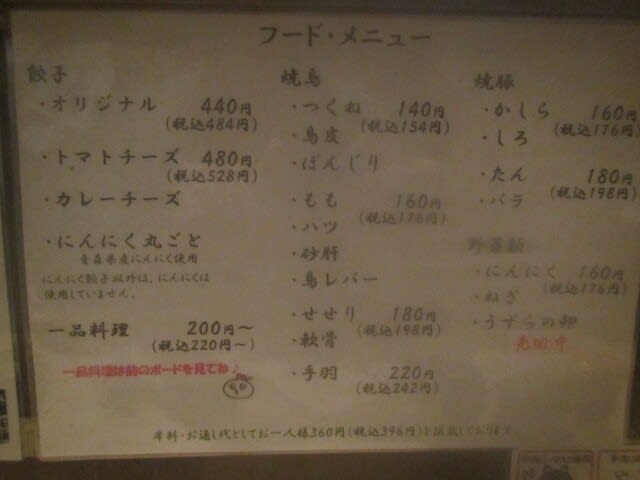 フード・メニュー
餃子
・オリジナル 440円
(税込484円)
・トマトチーズ 480円
(税込528円)
・カレーチーズ
・にんにく丸ごと
青森県産にんにく使用
にんにく餃子以外は、にんにくは
使用していません。
一品料理 200円～
(税込220円～)
一品料理は前のボードを見てね♪
焼鳥
・つくね 140円
(税込154円)
・鳥皮
・ぼんじり
・もも 160円
(税込176円)
・ハツ
・砂肝
・鳥レバー
・せせり 180円
(税込198円)
・軟骨
・手羽 220円
(税込242円)
焼豚
・かしら 160円
(税込176円)
・しろ
・たん 180円
(税込198円)
・バラ
野菜
・にんにく 160円
(税込176円)
・ねぎ
・うずらの卵
席料・お通し代としてお一人様360円(税込396円)を頂戴しております